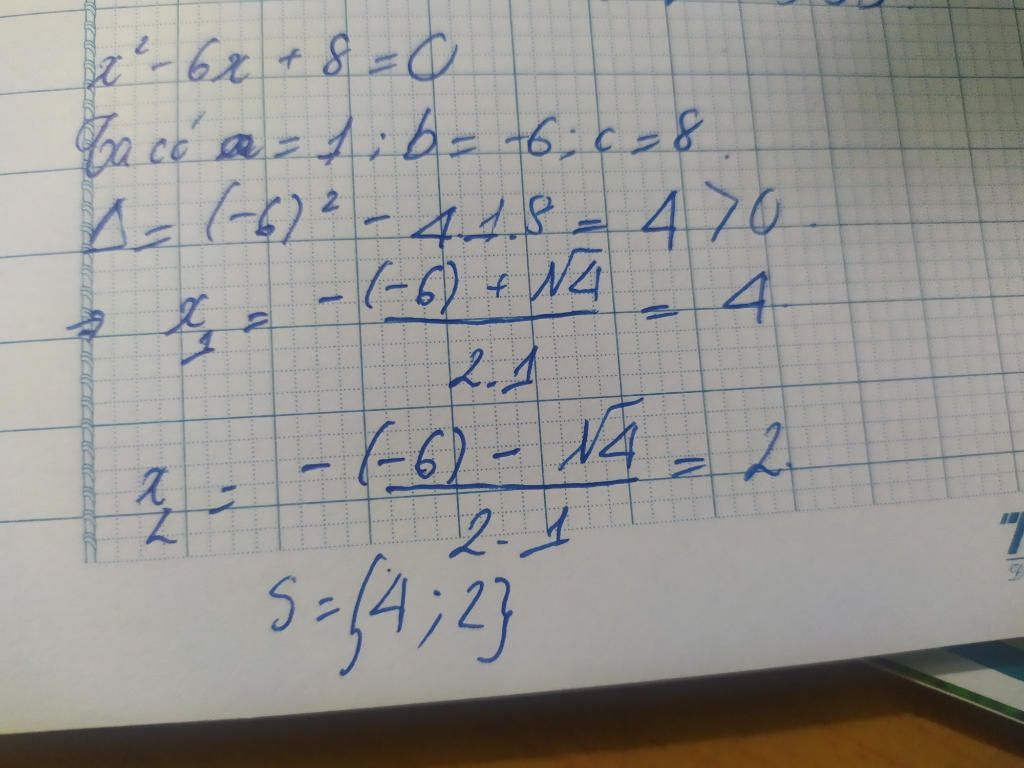 x² - 6x + 8 = 0
Ta có a = 1 ; b = -6 ; c = 8.
Δ = (-6)² - 4.1.8 = 4 > 0.
⇒ x₁ = (-(-6) + √4) / (2.1) = 4.
x₂ = (-(-6) - √4) / (2.1) = 2.
S = {4 ; 2}